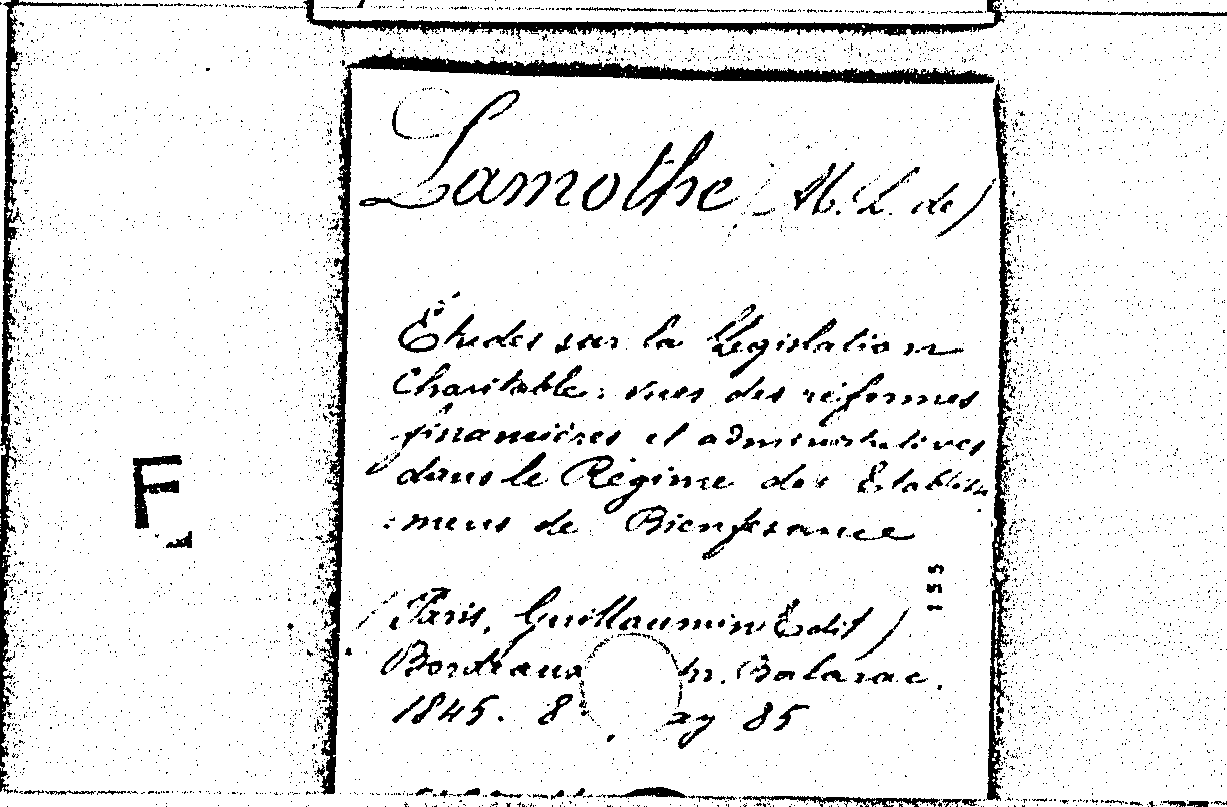 Lamothe (M. L. de)
Études sur la Législation
Charitable : vues des réformes
financières et administratives
dans le Régime des Établisse
-mens de Bienfesance
155
F
(Paris, Guillaumin Edit)
Bordeaux Balarac.
1845. 8 ag 85